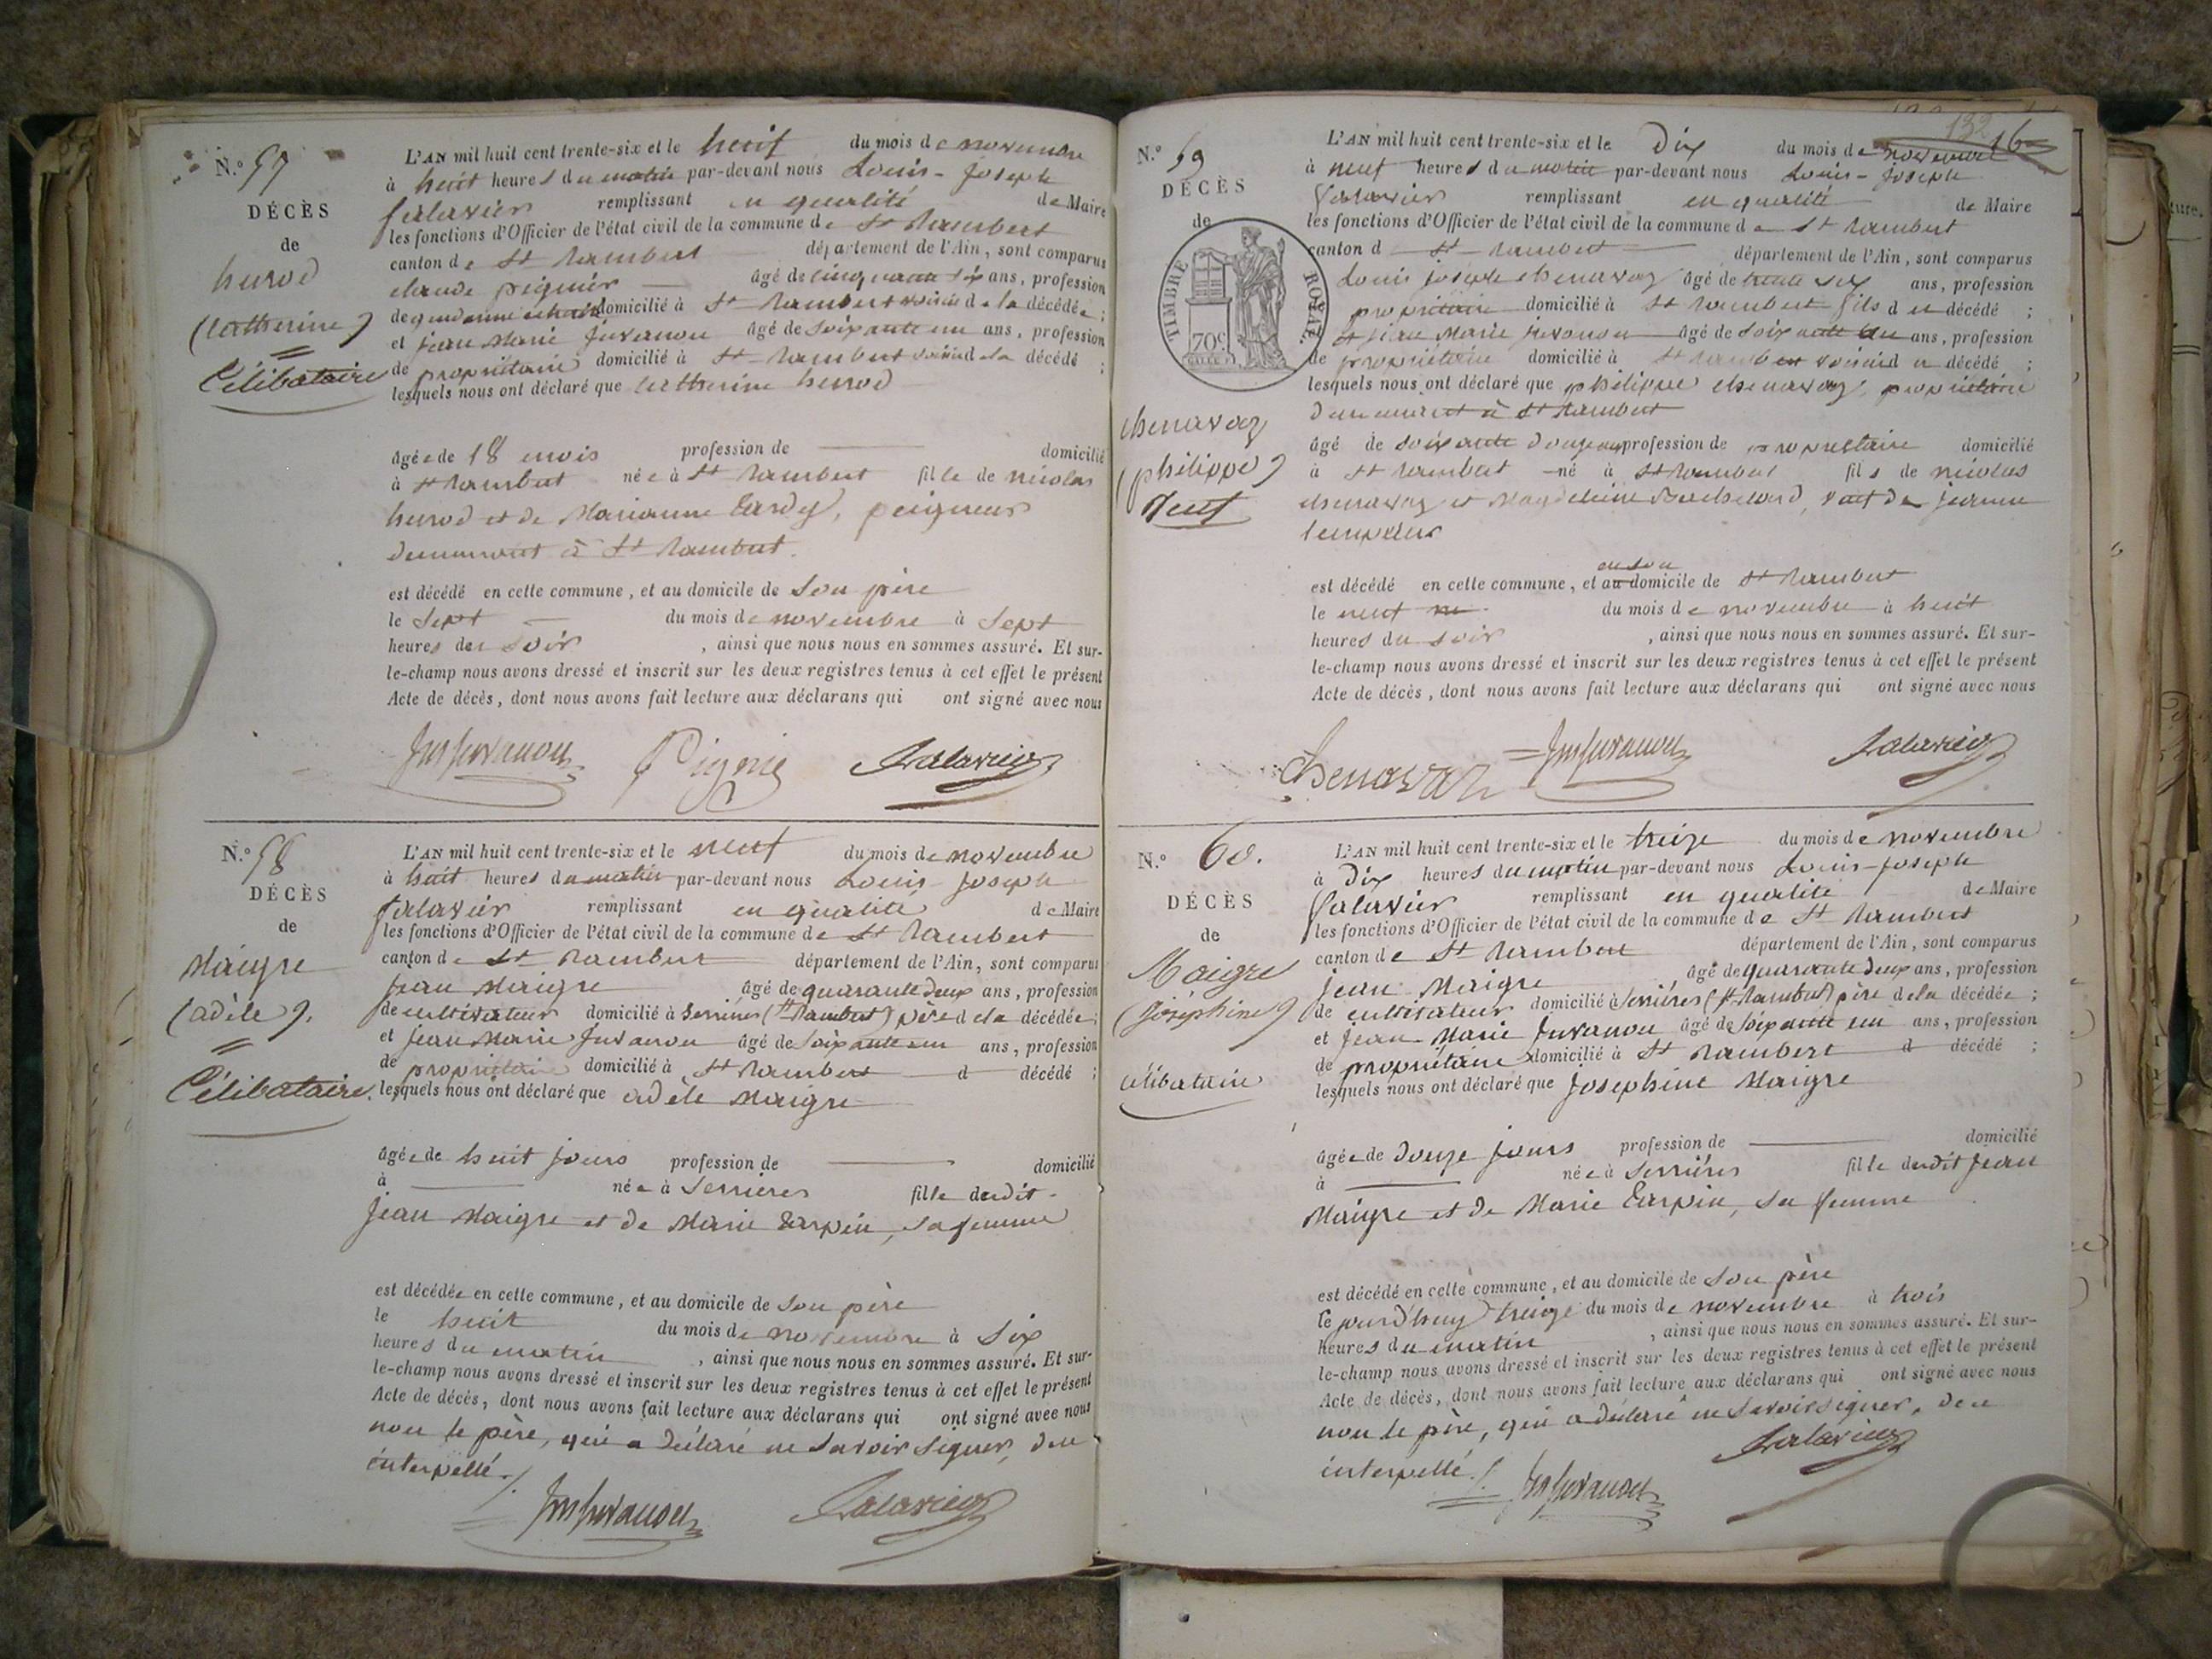 N.° 57
DÉCÈS
de
hurod
(Catherine)
Célibataire
L'AN mil huit cent trente-six et le huit du mois de novembre
à huit heures du matin par-devant nous Louis-Joseph
falavier remplissant en qualité de Maire
les fonctions d'Officier de l'état civil de la commune de St Rambert
canton de St Rambert département de l'Ain, sont comparus
claude pignier âgé de cinquante six ans, profession
de gendarme domicilié à St Rambert voisin de la décédée ;
et jean Marie juvanon âgé de soixante un ans, profession
de propriétaire domicilié à St Rambert voisin de la décédé ;
lesquels nous ont déclaré que Catherine hurod
âgée de 18 mois profession de domicilié
à St Rambert née à St Rambert fille de nicolas
hurod et de Marianne Tardy, peigneur
demeurant à St Rambert.
est décédé en cette commune, et au domicile de son père
le sept du mois de novembre à sept
heures du soir , ainsi que nous nous en sommes assuré. Et sur-
le-champ nous avons dressé et inscrit sur les deux registres tenus à cet effet le présent
Acte de décès, dont nous avons fait lecture aux déclarans qui ont signé avec nous
Jm juvanon Pignie falavier
N.° 58
DÉCÈS
de
Maigre
(adèle).
Célibataire.
L'AN mil huit cent trente-six et le neuf du mois de novembre
à huit heures du matin par-devant nous Louis Joseph
falavier remplissant en qualité de Maire
les fonctions d'Officier de l'état civil de la commune de St Rambert
canton de St Rambert département de l'Ain, sont comparus
jean Maigre âgé de quarante deux ans, profession
de cultivateur domicilié à Serrières (St Rambert) père de la décédée ;
et jean Marie juvanon âgé de soixante un ans, profession
de propriétaire domicilié à St Rambert d décédé ;
lesquels nous ont déclaré que adèle Maigre
âgée de huit jours profession de domicilié
à née à Serrières fille dudit
jean Maigre et de Marie Tarpin, sa femme
est décédée en cette commune, et au domicile de son père
le huit du mois de novembre à six
heures du matin , ainsi que nous nous en sommes assuré. Et sur-
le-champ nous avons dressé et inscrit sur les deux registres tenus à cet effet le présent
Acte de décès, dont nous avons fait lecture aux déclarans qui ont signé avec nous
non le père, qui a déclaré ne savoir signer, de ce
interpellé./.
Jm juvanon falavier
132 16
N.° 59
DÉCÈS
de
TIMBRE ROYAL.
70c
chenavaz
(philippe)
Veuf
L'AN mil huit cent trente-six et le Dix du mois de novembre
à neuf heures du matin par-devant nous Louis-Joseph
falavier remplissant en qualité de Maire
les fonctions d'Officier de l'état civil de la commune de St Rambert
canton d St Rambert département de l'Ain, sont comparus
Louis joseph chenavaz âgé de trente six ans, profession
propriétaire domicilié à St Rambert fils du décédé ;
et jean Marie juvanon âgé de soixante un ans, profession
de propriétaire domicilié à St Rambert voisin du décédé ;
lesquels nous ont déclaré que philippe chenavaz, propriétaire
demeurant à St Rambert
âgé de soixante douze ans profession de propriétaire domicilié
à St Rambert né à St Rambert fils de nicolas
chenavaz et Magdeleine, veuf de jeanne
est décédé en cette commune, et au domicile de St Rambert
en son
le neuf du mois de novembre à huit
heures du soir , ainsi que nous nous en sommes assuré. Et sur-
le-champ nous avons dressé et inscrit sur les deux registres tenus à cet effet le présent
Acte de décès, dont nous avons fait lecture aux déclarans qui ont signé avec nous
Chenavaz Jm juvanon falavier
N.° 60.
DÉCÈS
de
Maigre
(joséphine)
célibataire
L'AN mil huit cent trente-six et le treize du mois de novembre
à Dix heures du matin par-devant nous Louis-Joseph
falavier remplissant en qualité de Maire
les fonctions d'Officier de l'état civil de la commune de St Rambert
canton de St Rambert département de l'Ain, sont comparus
jean Maigre âgé de quarante deux ans, profession
de cultivateur domicilié à Serrières (St Rambert) père de la décédée ;
et jean Marie juvanon âgé de soixante un ans, profession
de propriétaire domicilié à St Rambert d décédé ;
lesquels nous ont déclaré que josephine Maigre
âgée de douze jours profession de domicilié
à née à Serrières fille dudit jean
Maigre et de Marie Tarpin, sa femme
est décédé en cette commune, et au domicile de son père
le jourd'huy treize du mois de novembre à trois
heures du matin , ainsi que nous nous en sommes assuré. Et sur-
le-champ nous avons dressé et inscrit sur les deux registres tenus à cet effet le présent
Acte de décès, dont nous avons fait lecture aux déclarans qui ont signé avec nous
non le père, qui a déclaré ne savoir signer, de ce
interpellé./. Jm juvanon falavier